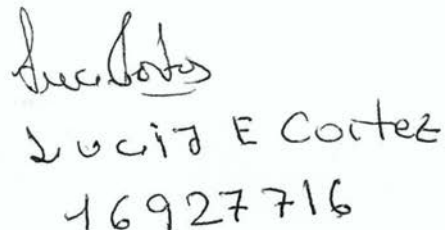 Lucia E Cortez
16927716